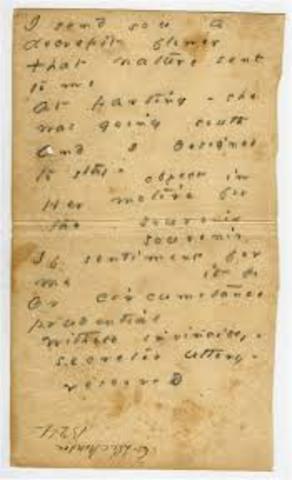 I send you a
decrepit flower
that nature sent
to me
At parting - she
was going south
And I designed
to stay -
Her motive for
the souvenir
souvenir
If sentiment for
me
Or circumstance
prudential
Withheld invincible -
secretes utterly -
reserved